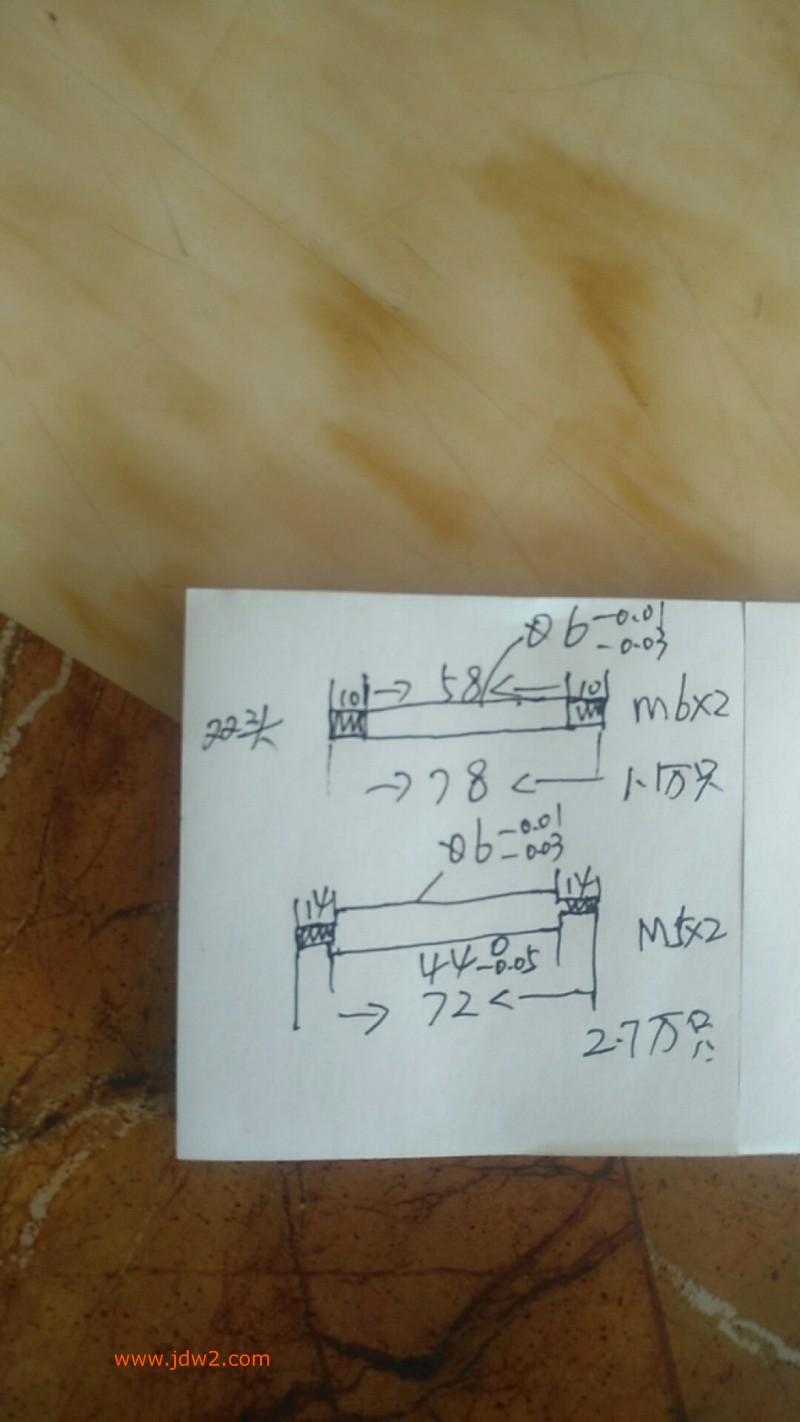 Ø6 -0.01
-0.03
10 → 58 ← 10
M6×2
→ 78 ←
1.1万只
Ø6 -0.01
-0.03
14 14
M5×2
44 0
-0.05
→ 72 ←
2.7万只
www.jdw2.com